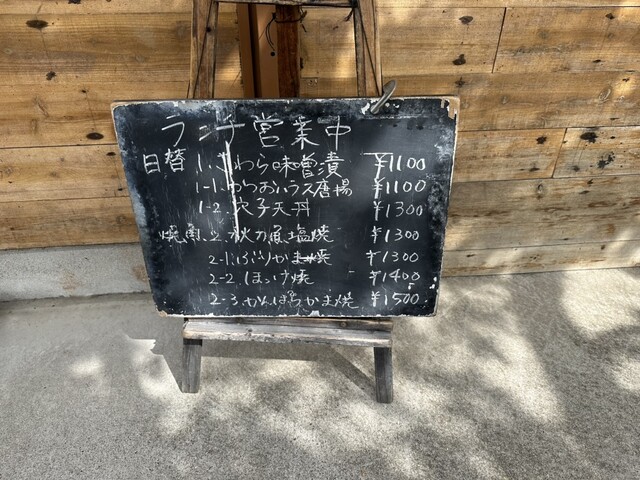 ランチ営業中
日替 1. さわら味噌漬 ¥1100
1-1. わらおいうス唐揚 ¥1100
1-2. 穴子天丼 ¥1300
焼魚 2. 秋刀魚塩焼 ¥1300
2-1. ぶりかま焼 ¥1300
2-2. ほっけ焼 ¥1400
2-3. かんぱちかま焼 ¥1500